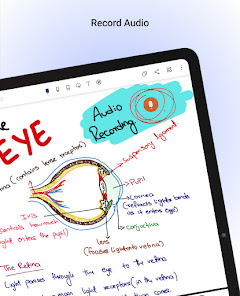 Record Audio
Audio
Recording
EYE
(contains lense receptors)
Suspensory ligament
Pupil
Cornea
(refracts light & bends
as it enters eye)
conjuctiva
Iris
controls how
light enters the pupil)
lens
(focuses light onto retina)
The Retina
Light passes through the eye to the retina
light receptors (in the retina)